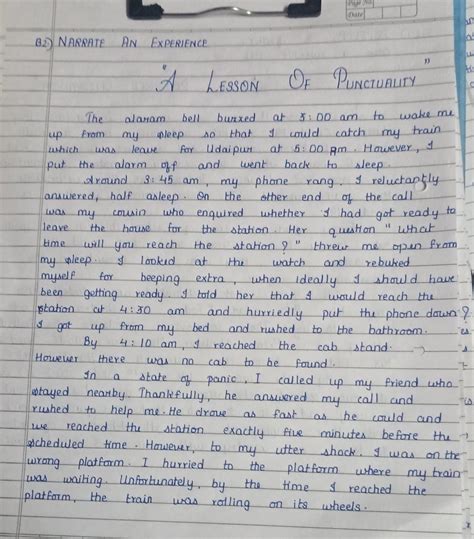 Page No.
Date
Q2) NARRATE AN EXPERIENCE
"A LESSON OF PUNCTUALITY"
The alaram bell buzzed at 3:00 am to wake me
up from my sleep so that I could catch my train
which was leave for Udaipur at 5:00 am. However, I
put the alarm off and went back to sleep.
Around 3:45 am, my phone rang. I reluctantly
answered, half asleep. On the other end of the call
was my cousin who enquired whether I had got ready to
leave the house for the station. Her question "What
time will you reach the station?" threw me open from
my sleep. I looked at the watch and rebuked
myself for beeping extra, when ideally I should have
been getting ready. I told her that I would reach the
station at 4:30 am and hurriedly put the phone down?
I got up from my bed and rushed to the bathroom.
By 4:10 am, I reached the cab stand.
However there was no cab to be found.
In a state of panic, I called up my friend who
stayed nearby. Thankfully, he answered my call and
rushed to help me. He drove as fast as he could and
we reached the station exactly five minutes before the
scheduled time. However, to my utter shock, I was on the
wrong platform. I hurried to the platform where my train
was waiting. Unfortunately, by the time I reached the
platform, the train was rolling on its wheels.